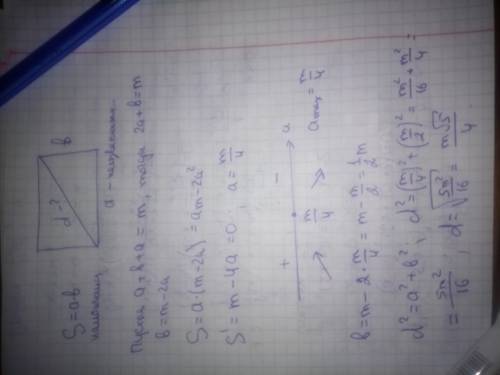 S=ab
наибольшую
d-?
b
a - неизвестная
Пусть a+b+a=m, тогда 2a+b=m
b=m-2a
S=a·(m-2a)=am-2a²
S'=m-4a=0; a=m/4
+ - a
m/4
a max=m/4
b=m-2·m/4=m-m/2=1/2m
d²=a²+b²; d²=(m/4)²+(m/2)²=m²/16+m²/4=
=5m²/16; d=√5m²/16=m√5/4